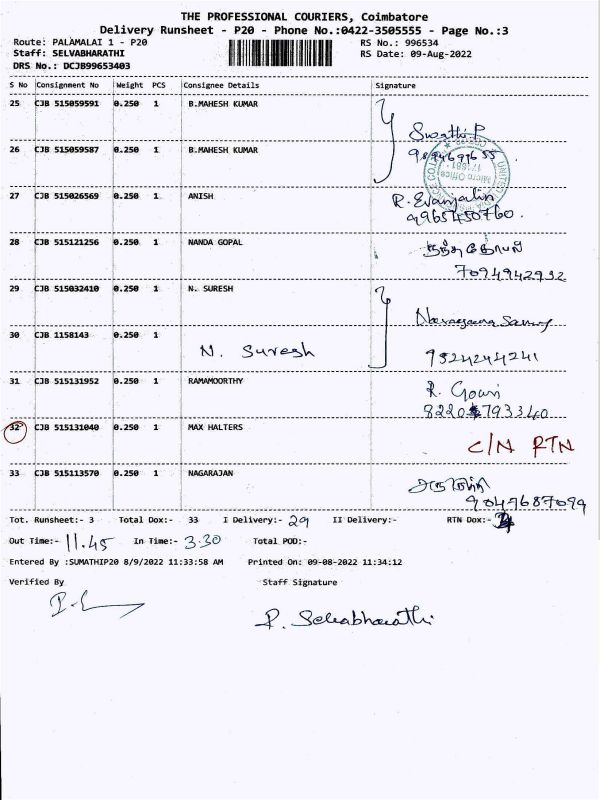 THE PROFESSIONAL COURIERS, Coimbatore
Delivery Runsheet - P20 - Phone No.:0422-3505555 - Page No.:3
Route: PALAMALAI 1 - P20 RS No.: 996534
Staff: SELVABHARATHI RS Date: 09-Aug-2022
DRS No.: DCJB99653403
S No Consignment No Weight PCS Consignee Details Signature
25 CJB 515059591 0.250 1 B.MAHESH KUMAR
Swathi P
26 CJB 515059587 0.250 1 B.MAHESH KUMAR
27 CJB 515026569 0.250 1 ANISH R. Evanjalin
9965450760.
28 CJB 515121256 0.250 1 NANDA GOPAL
7094942992
29 CJB 515032410 0.250 1 N. SURESH
30 CJB 1158143 0.250 1
N. Suresh 9524244241
31 CJB 515131952 0.250 1 RAMAMOORTHY R. Gowri
32 CJB 515131040 0.250 1 MAX HALTERS C/N RTN
33 CJB 515113570 0.250 1 NAGARAJAN
9049687099
Tot. Runsheet:- 3 Total Dox:- 33 I Delivery:- 29 II Delivery:- RTN Dox:-
Out Time:- 11.45 In Time:- 3.30 Total POD:-
Entered By :SUMATHIP20 8/9/2022 11:33:58 AM Printed On: 09-08-2022 11:34:12
Verified By Staff Signature
P. Selvabharathi